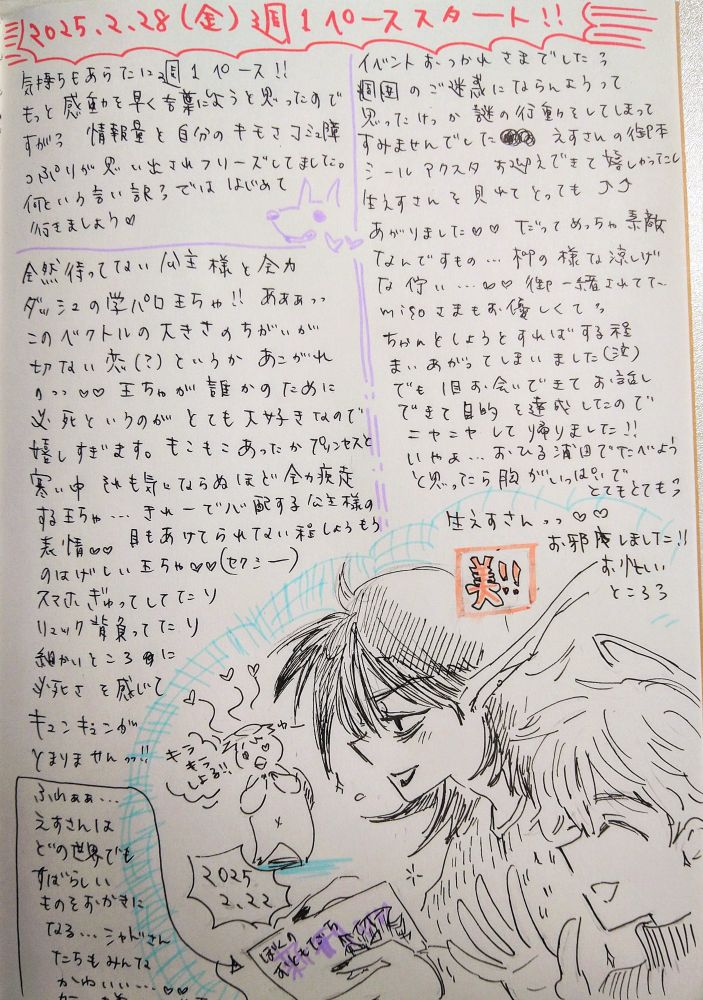 2025.2.28(金)週1ペーススタート!!
気持ちもあらたに週1ペース!!
もっと感動を早く言葉にしようと思ったので
すがっ 情報量と自分のキモさコミュ障
っぷりが思い出されフリーズしてました。
何という言い訳っでははじめて
行きましょう♡
全然待ってない公主様と全力
ダッシュの学パロ王ちゃ!! あぁぁっっ
このベクトルの大きさのちがいが
切ない恋(?)というかあこがれ
のっっ♡♡ 王ちゃが誰かのために
必死というのがとても大好きなので
嬉しすぎます。もこもこあったかプリンセスと
寒い中それも気にならぬほど全力疾走
する王ちゃ…きれーで心配する公主様の
表情♡♡ 目もあけてられない程しょうもう
のはげしい王ちゃ♡♡(セクシー)
スマホぎゅってしてたり
リュック背負ってたり
細かいところに
必死さを感じて
キュンキュンが
とまりませんっっ!!
ふわぁぁ…
えすさんは
どの世界でも
すばらしい
ものをおかきに
なる…シャドさん
たちもみんな
かわいい…♡♡
イベントおつかれさまでしたっ
周囲のご迷惑にならんようって
思ったけっか謎の行動をしてしまって
すみませんでした えすさんの御本
シールアクスタお迎えできて嬉しかったし
生えすさんを見れてとっても♪♪
あがりました♡♡ だってめっちゃ素敵
なんですもの…柳の様な涼しげ
な佇い…♡♡ 御一緒されてた
migoさまもお優しくてっ
ちゃんとしようとすればする程
まいあがってしまいました(泣)
でも1目お会いできてお話し
できて目的を達成したので
ニヤニヤして帰りました!!
いやぁ…おひる浦田でたべよう
と思ったら胸がいっぱいで
とてもとてもっ
生えすさんっっ♡♡
お邪魔しました!!
お忙しい
ところっ
美!!
キラキラ
しよる!!
2025
2.22
ぼくの
おともだち